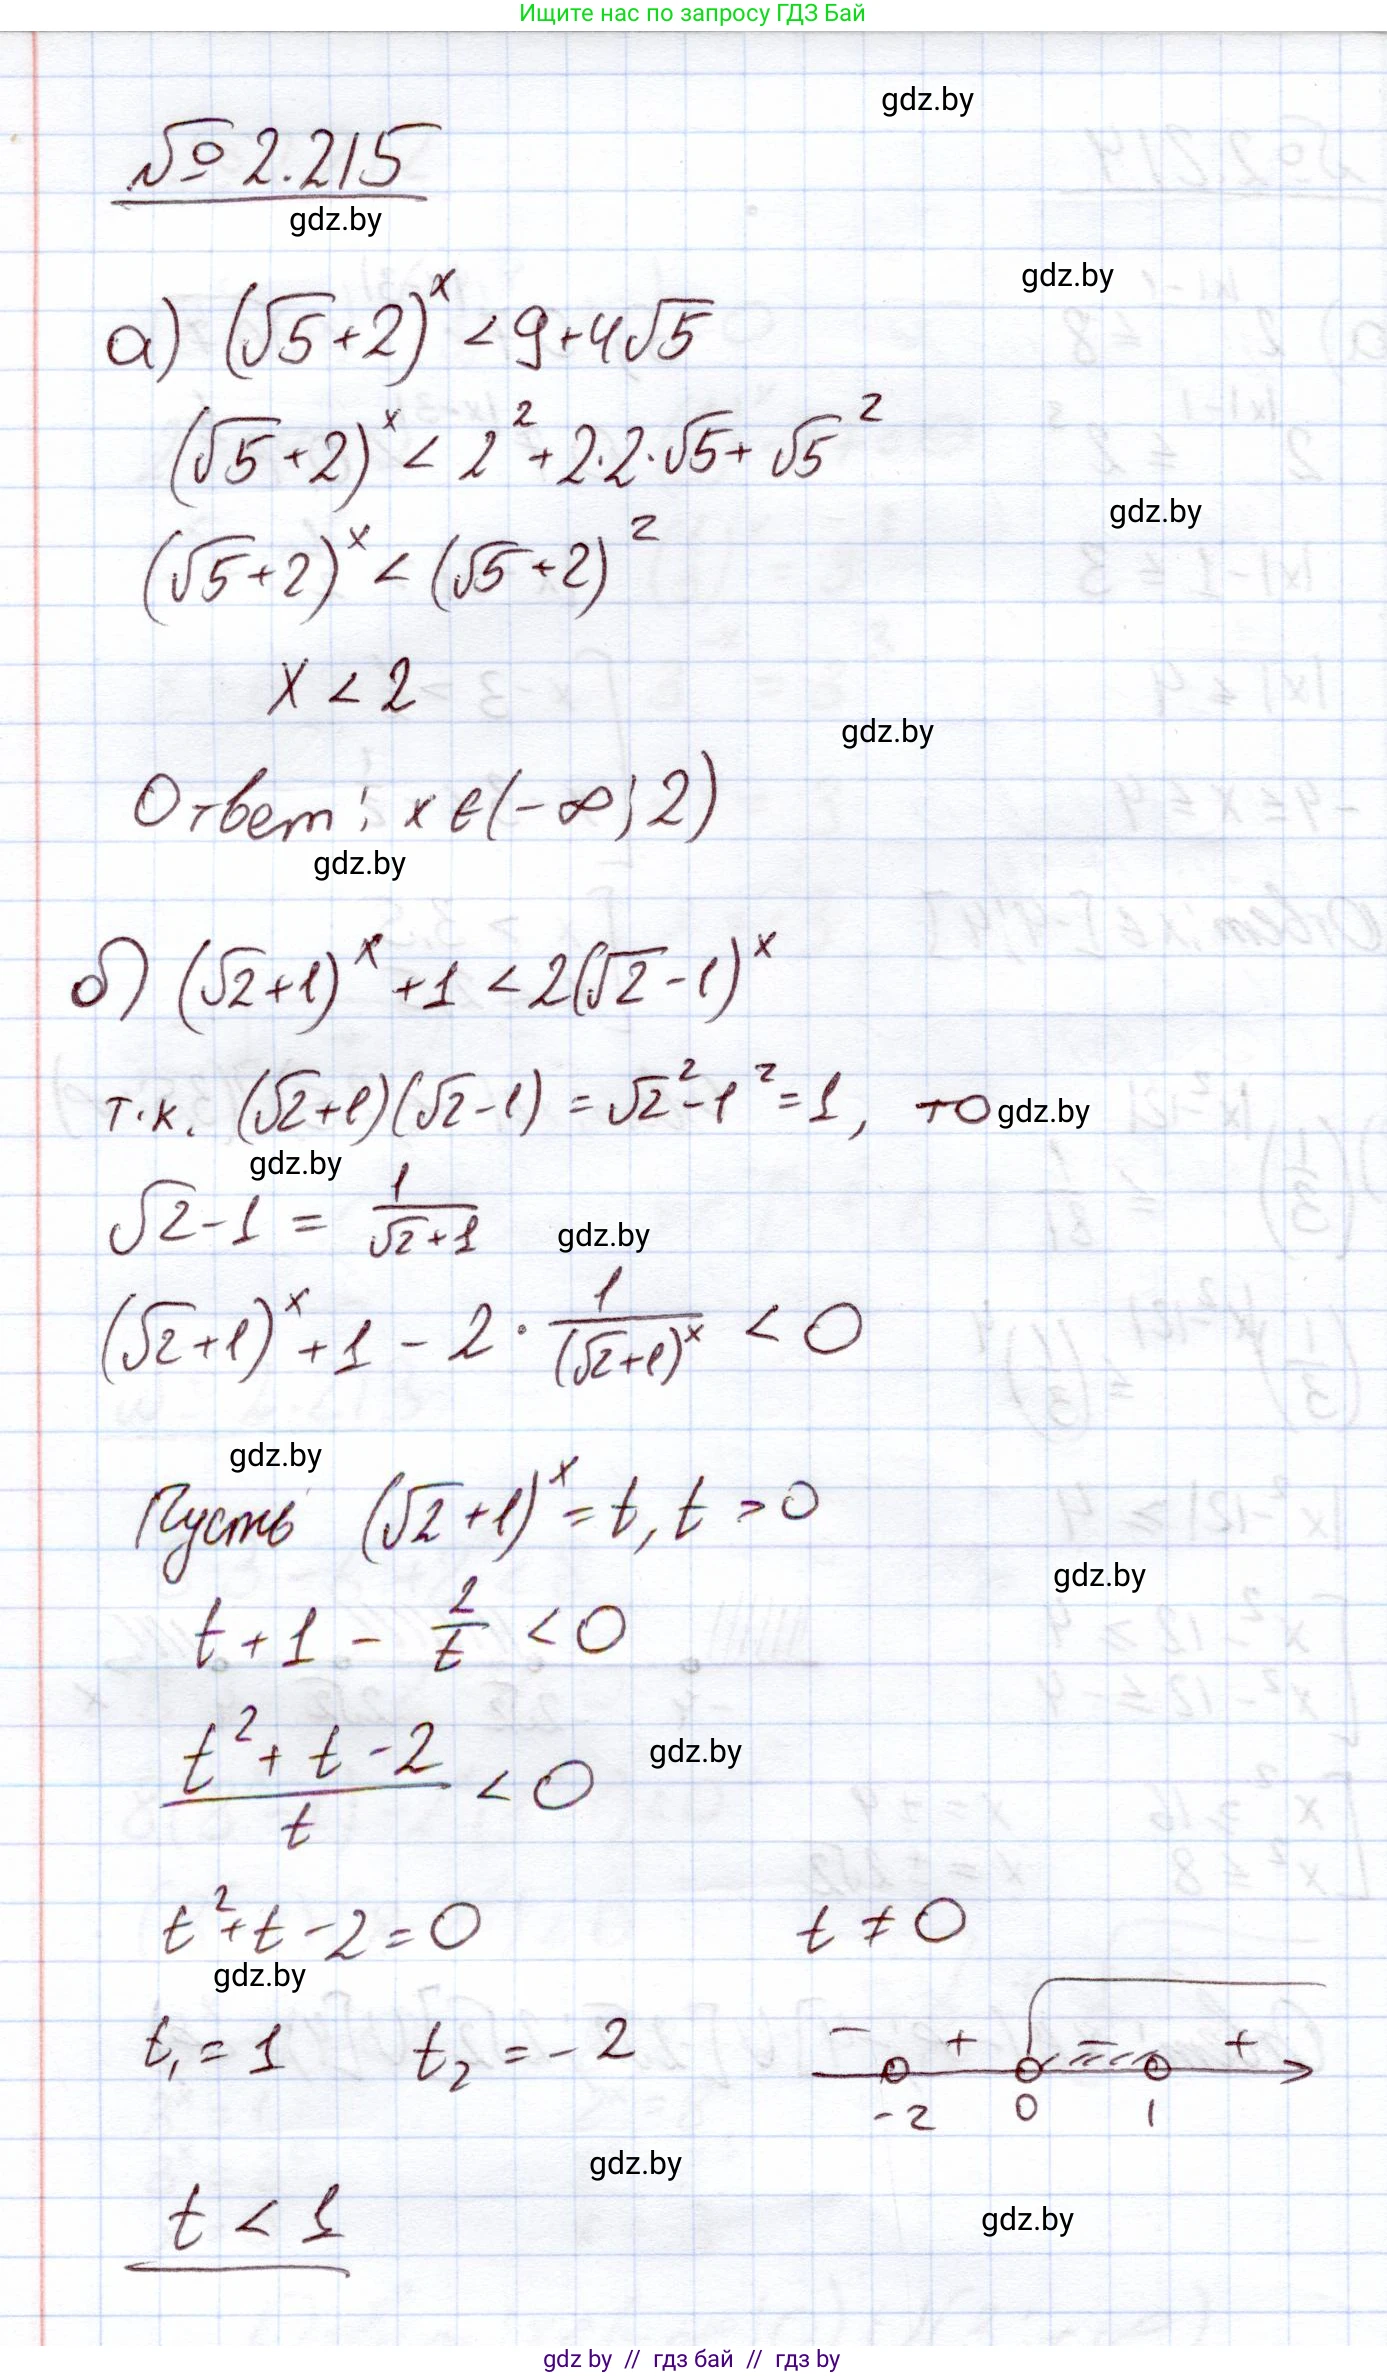 Ищите нас по запросу ГДЗ Бай
gdz.by
№ 2.215
gdz.by
gdz.by
а) (√5+2)^x < 9+4√5
(√5+2)^x < 2^2 + 2·2·√5 + √5^2
gdz.by
(√5+2)^x < (√5+2)^2
x < 2
gdz.by
Ответ: x ∈ (-∞; 2)
gdz.by
б) (√2+1)^x + 1 < 2(√2-1)^x
т.к. (√2+1)(√2-1) = √2^2 - 1^2 = 1, то gdz.by
gdz.by
√2-1 = 1/(√2+1)
gdz.by
(√2+1)^x + 1 - 2 · 1/(√2+1)^x < 0
gdz.by
Пусть (√2+1)^x = t, t > 0
gdz.by
t + 1 - 2/t < 0
(t^2 + t - 2)/t < 0
gdz.by
t^2 + t - 2 = 0 t ≠ 0
gdz.by
t₁ = 1 t₂ = -2
- + - +
-2 0 1
gdz.by
t < 1
gdz.by
gdz by // гдз бай // гдз by